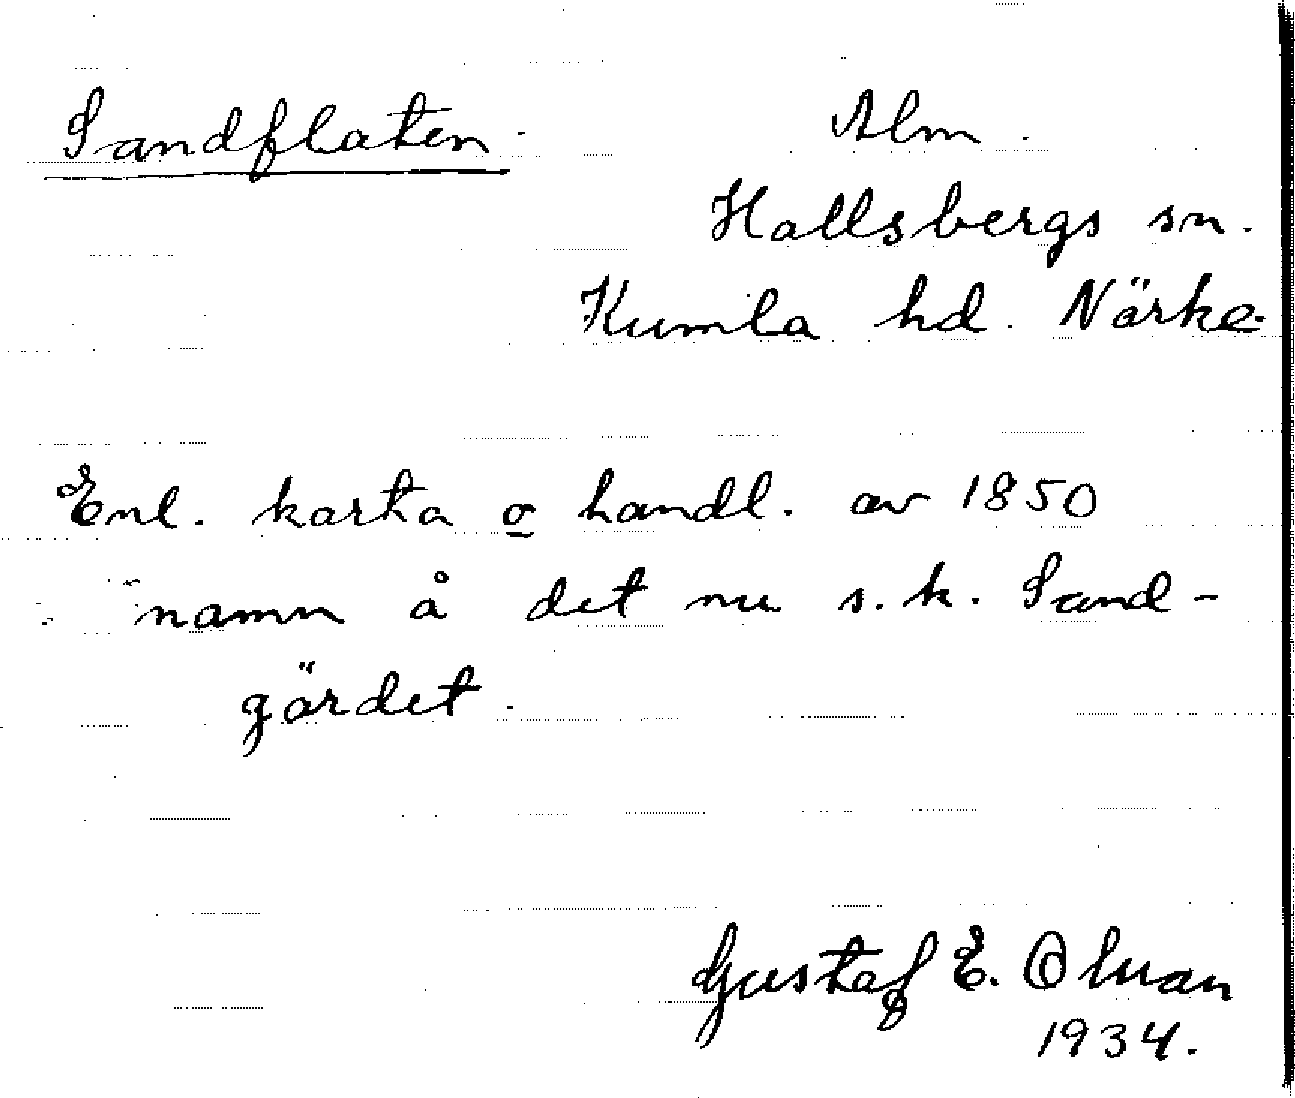 Sandflaten.
Alm.
Hallsbergs sn.
Kumla hd. Närke.
Enl. karta o handl. av 1850
namn å det nu s.k. Sand-
gärdet.
Gustaf E.
1934.